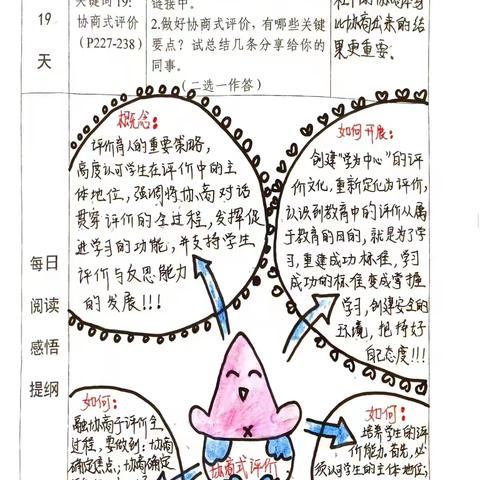 19
天
关键词19:
协商式评价
(P227-238)
链接中。
2.做好协商式评价，有哪些关键
要点？试总结几条分享给你的
同事。
（二选一作答）
比协商出来的结
果更重要。
每日
阅读
感悟
提纲
概念：
评价育人的重要策略，
高度认可学生在评价中的主
体地位，强调将协商对话
贯穿评价的全过程，发挥促
进学习的功能，并支持学生
评价与反思能力
的发展!!!
如何开展：
创建“学为中心”的评
价文化，重新定位为评价，
认识到教育中的评价从属
于教育的目的，就是为了学
习，重建成功标准，学习
成功的标准变成掌握
学习，创建安全的
环境，把持好
自己态度!!!
如何：
融协商于评价全
过程，要做到：协商
确定焦点；协商确定
协商式评价
如何：
培养学生的评
价能力。首先，必
须认可学生的主体地位；